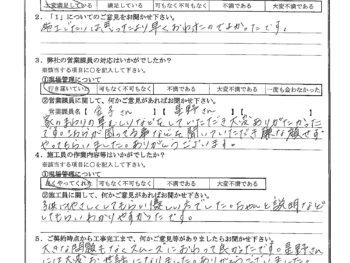 大変満足している 満足している 可も不可も不可もなく 不満である 大変不満である
2．「1」についてのご意見をお聞かせ下さい。
施工じたいは思ったより早くおわれたのでよかったです。
3．弊社の営業課員の対応はいかがでしたか？
※該当する項目に○を記入して下さい。
①現場管理について
行き届いていた 可も不可も不可もなく 不満である 大変不満である 一度も会わなかった
②営業課員に関して、何かご意見があればお聞かせ下さい。
【営業課員名】【 さん 星野さん 】
家のまわりの草むしりなどをしていただき大変ありがたかった
です。こちらが困ってる事などを聞いていただき嫌な顔せず
やってもらいました。ありがとうございます。
4．施工員の作業内容等はいかがでしたか？
※該当する項目に○を記入して下さい。
①現場管理について
良くやってくれた 可も不可もなく 不満である 大変不満である
②施工員に関して、何かご意見があればお聞かせ下さい。
してもらいわかりやすかったです。
5．ご契約時点から工事完工まで、何かご意見等がありましたらお聞かせ下さい。
大きな問題もなくスムーズにおわって良かったです。星野さん
には大変お世話になりました。ありがとうございました。